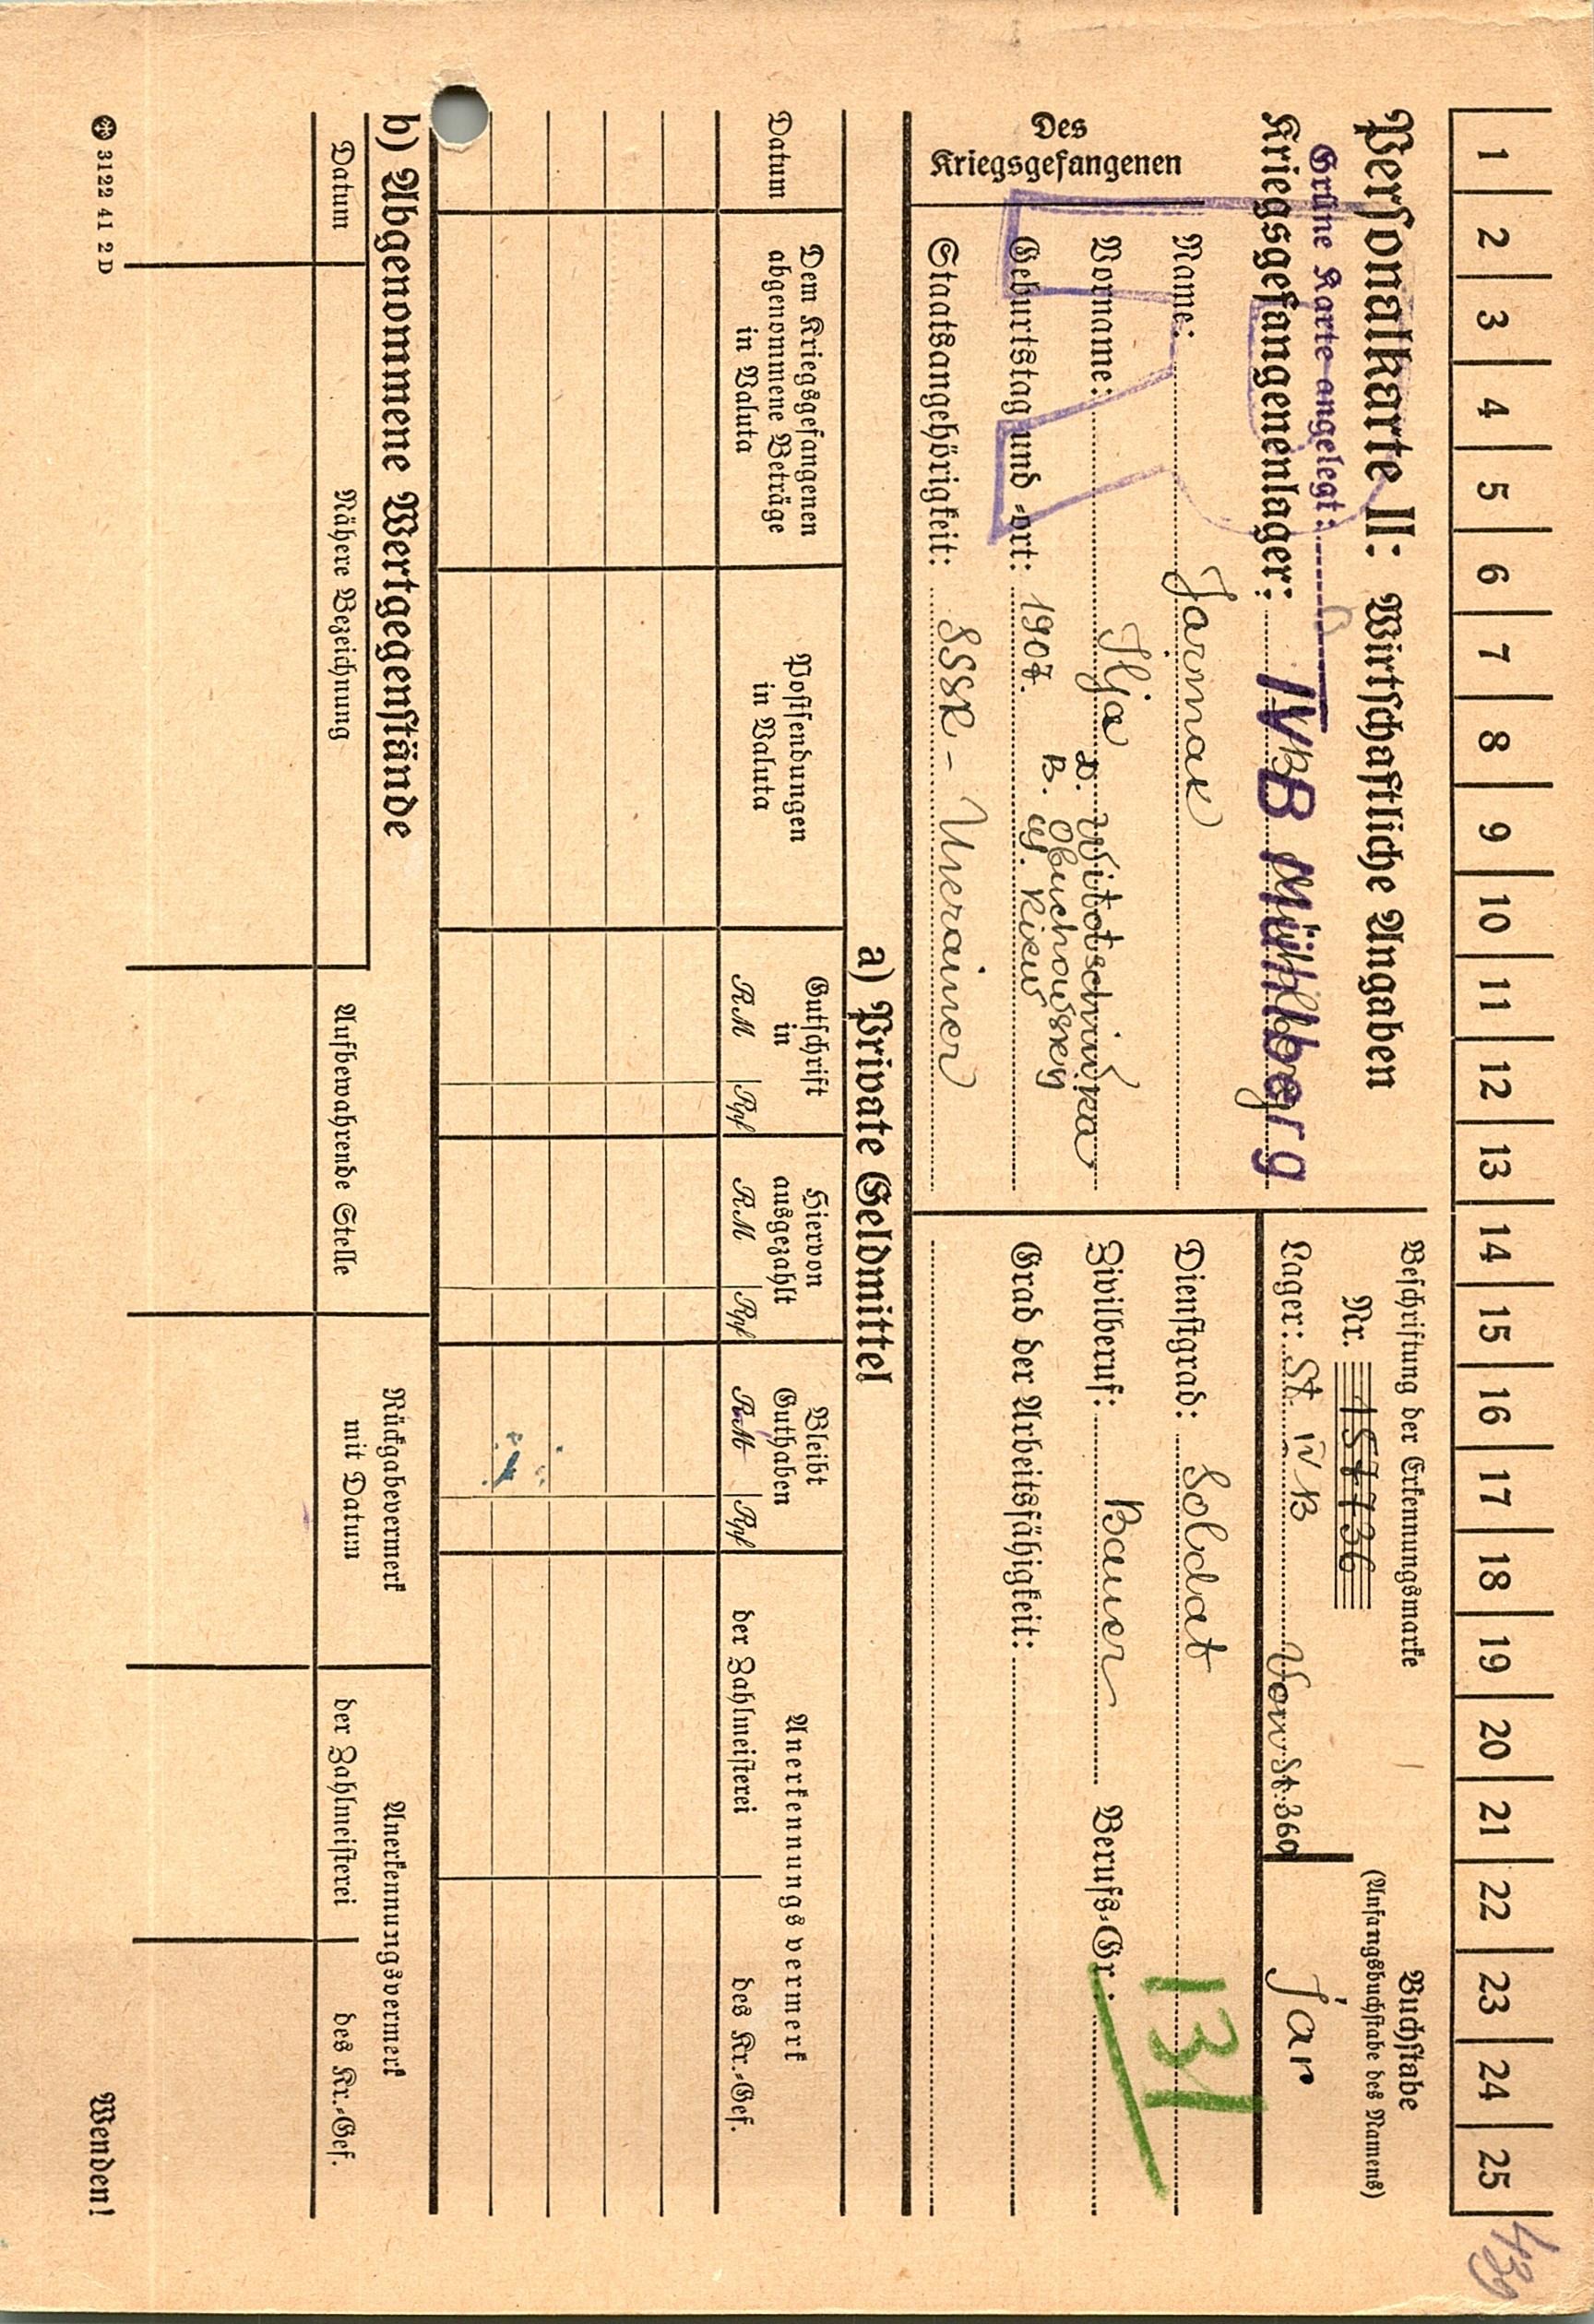 1 2 3 4 5 6 7 8 9 10 11 12 13 14 15 16 17 18 19 20 21 22 23 24 25
439
Personalkarte II: Wirtschaftliche Angaben
Grüne Karte angelegt:
Kriegsgefangenenlager: IVB Mühlberg
Beschriftung der Erkennungsmarke
Nr. 157736
Lager: St. IV B Von St. 360
Buchstabe
(Anfangsbuchstabe des Namens)
Jar
Des
Kriegsgefangenen
Name: Jarmak
Vorname: Ilja
D. Witotschiwka
B. Obuchowsky
G. Kiew
Geburtstag und -ort: 1907.
Staatsangehörigkeit: SSSR - Ukrainer
Dienstgrad: Soldat
Zivilberuf: Bauer Berufs-Gr.
131
Grad der Arbeitsfähigkeit:
a) Private Geldmittel
Datum
Dem Kriegsgefangenen
abgenommene Beträge
in Valuta
Postsendungen
in Valuta
Gutschrift
in
RM Rpf
Hiervon
ausgezahlt
RM Rpf
Bleibt
Guthaben
RM Rpf
Anerkennungsvermerk
der Zahlmeisterei des Kr.-Gef.
b) Abgenommene Wertgegenstände
Datum
Nähere Bezeichnung
Aufbewahrende Stelle
Rückgabevermerk
mit Datum
Anerkennungsvermerk
der Zahlmeisterei des Kr.-Gef.
3122 41 2 D
Wenden!